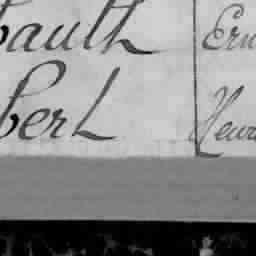 bault Ern
bert Henr